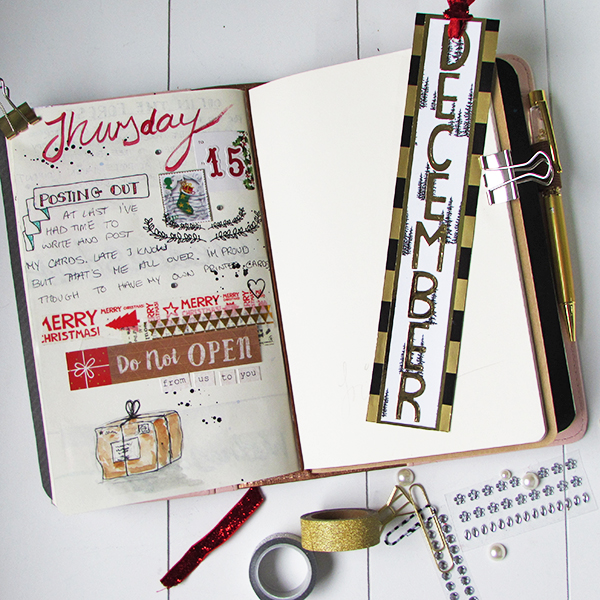 Thursday
15
POSTING OUT
AT LAST I'VE
HAD TIME TO
WRITE AND POST
MY CARDS. LATE I KNOW
BUT THAT'S ME ALL OVER. I'M PROUD
THOUGH TO HAVE MY OWN PRINTED CARDS
MERRY CHRISTMAS!
MERRY CHRISTMAS!
MERRY
MERRY
Do Not OPEN
from us to you
DECEMBER